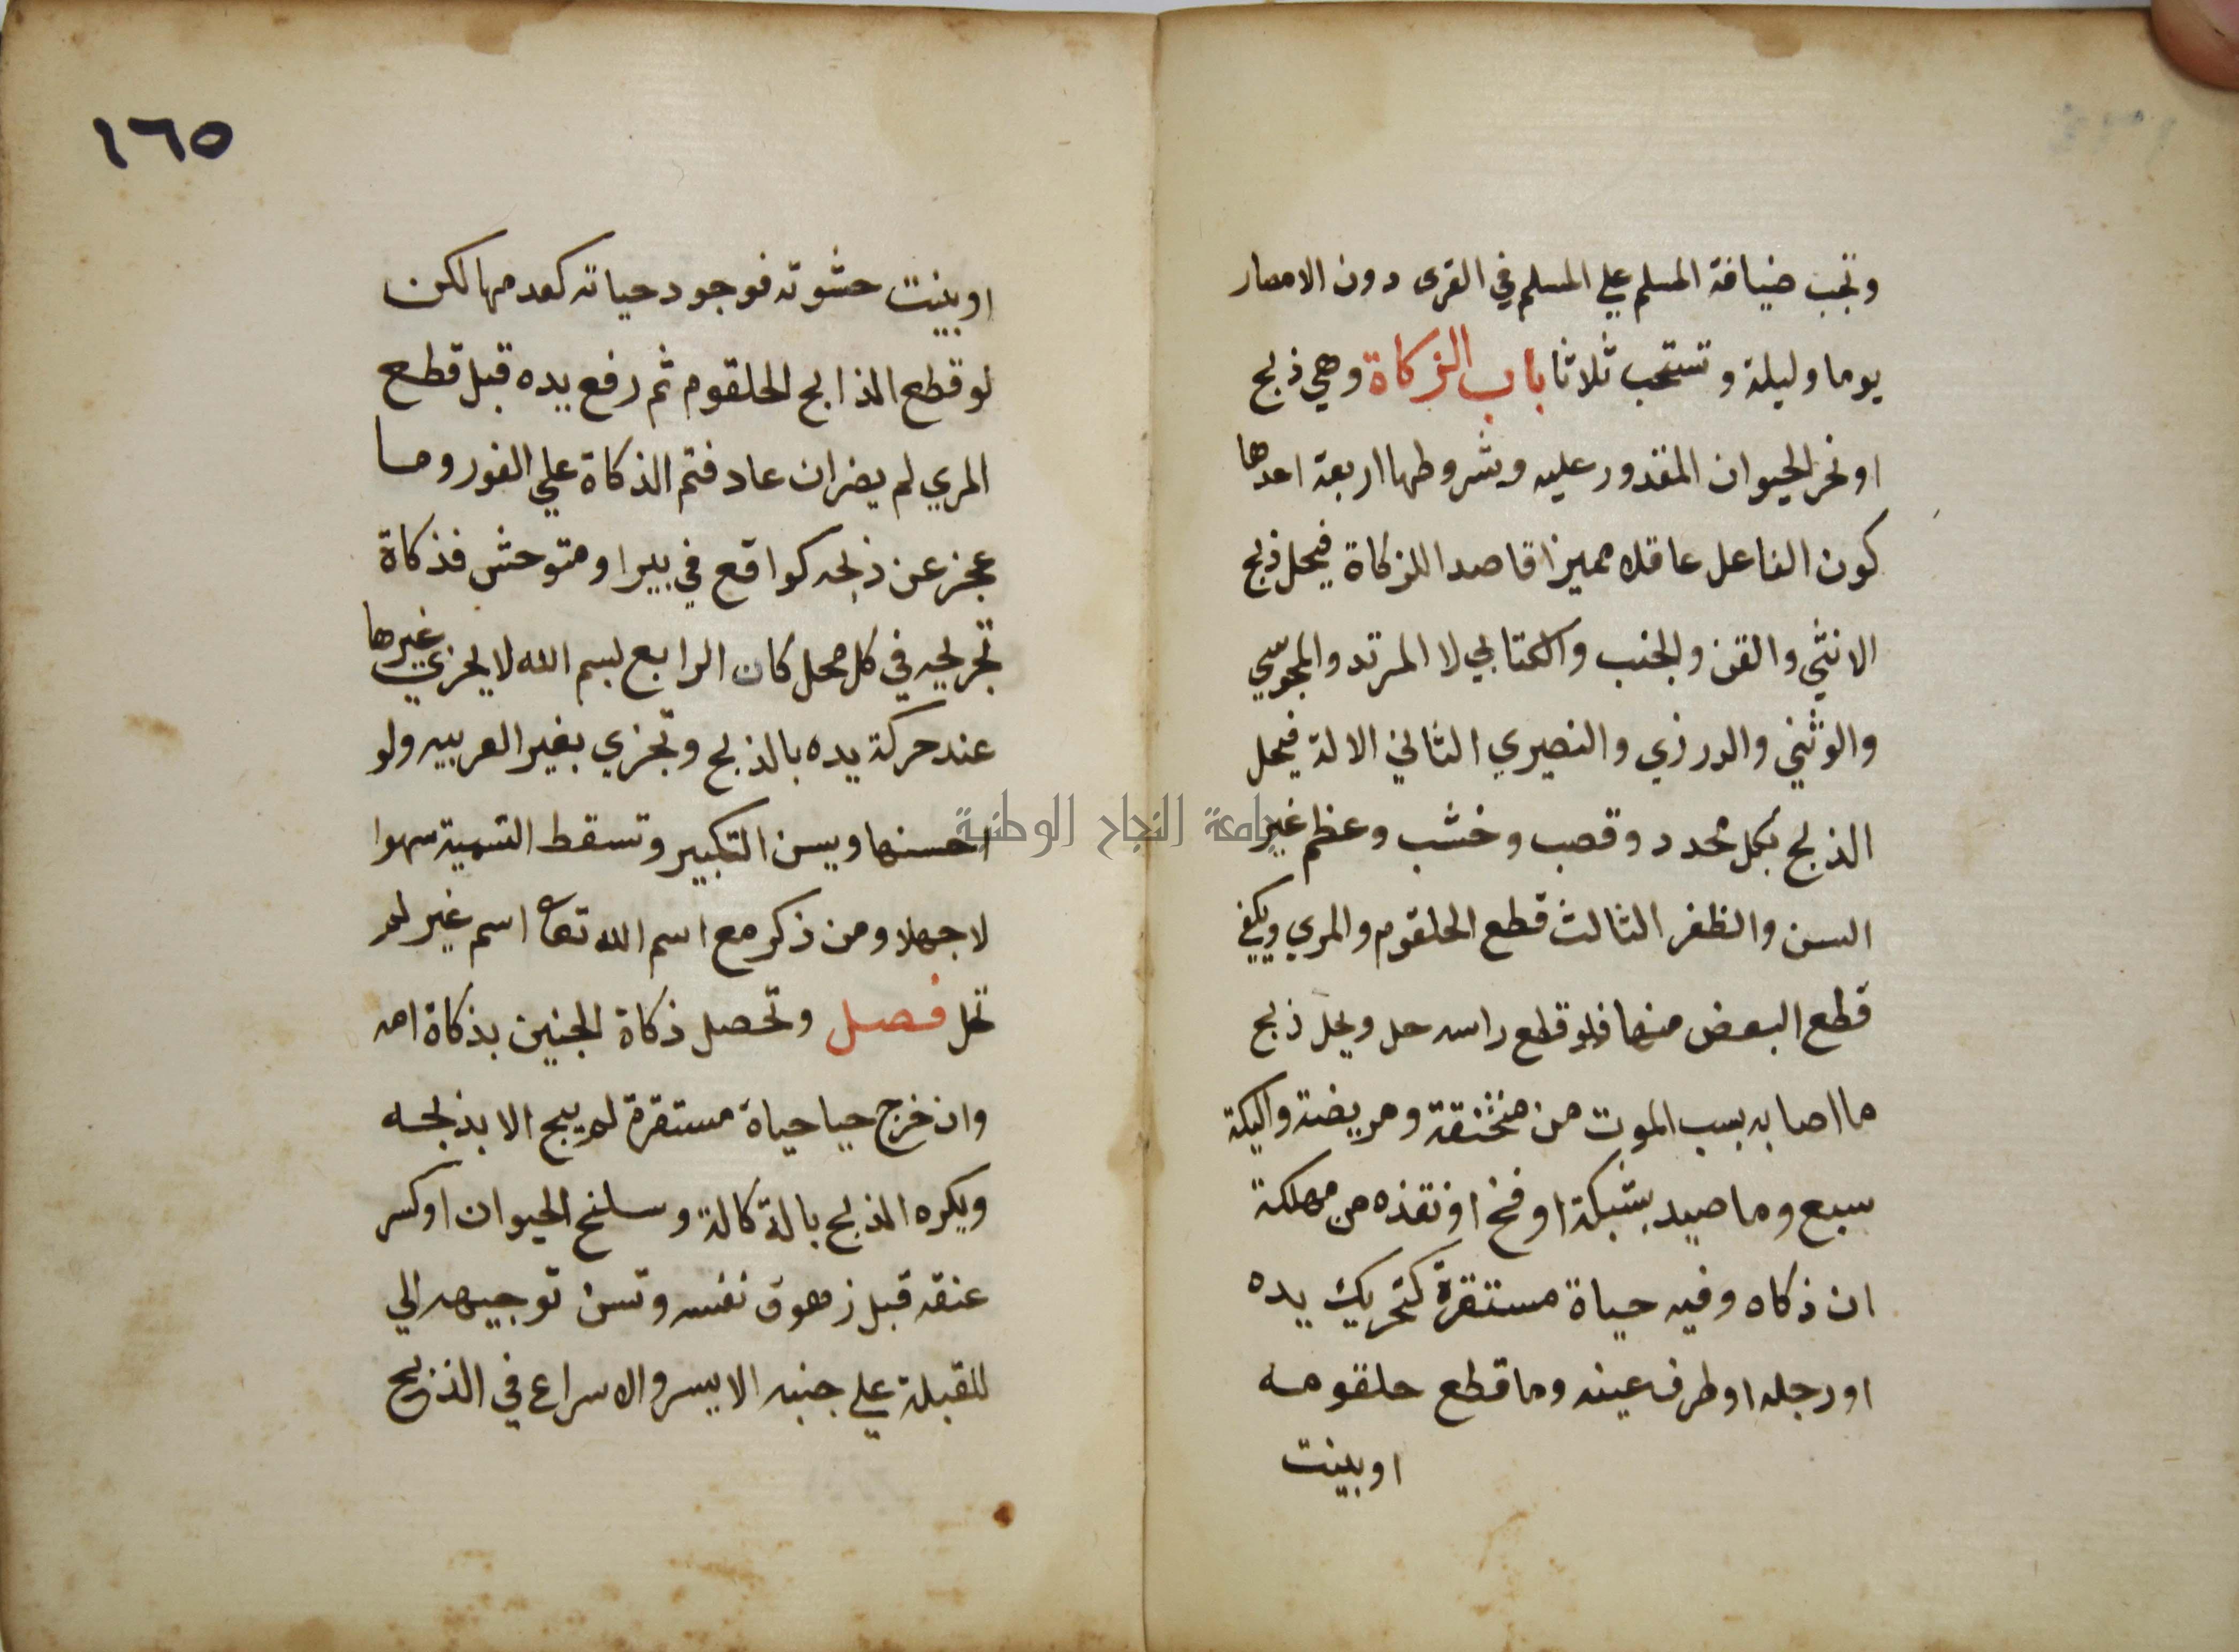 وتجب ضيافة المسلم علي المسلم في القرى دون الامصار
يوما وليلة وتستحب ثلاثا باب الزكاة وهي ذبح
او نحر الحيوان المقدور عليه وشروطها اربعة احدها
كون الفاعل عاقلا مميزا قاصدا للزكاة فيحل ذبح
الانثي والقن والجنب والكتابي لا المرتد والمجوسي
والوثني والدرزي والنصيري الثاني الالة فيحل
الذبح بكل محدد وقصب وخشب وعظم غير
السن والظفر الثالث قطع الحلقوم والمري ويكفي
قطع البعض منها فلو قطع راسه حل ويحل ذبح
ما اصابه بسبب الموت من منخنقة ومريضة واكيلة
سبع وما صيد بشبكة او فخ او نقذه من مهلكة
ان ذكاه وفيه حياة مستقرة كتحريك يده
او رجله او طرف عينه وما قطع حلقومه
او بينت
١٦٥
او بينت حشوته فوجود حياته كعدمها لكن
لو قطع الذابح الحلقوم ثم رفع يده قبل قطع
المري لم يضر ان عاد فتم الذكاة علي الفور وما
عجز عن ذبحه كواقع في بير او متوحش فذكاة
تجريحه في كل محل كان الرابع بسم الله لا يجزي غيرها
عند حركة يده بالذبح وتجزي بغير العربيه ولو
احسنها ويسن التكبير وتسقط التسمية سهوا
لا جهلا ومن ذكر مع اسم الله تعا اسم غير لم
تحل فصل وتحصل ذكاة الجنين بذكاة امه
وان خرج حيا حياة مستقرة لم يبح الا بذبحه
ويكره الذبح بالة كالة وسلخ الحيوان او كسر
عنقه قبل زهوق نفسه وتسن توجيهه الي
للقبلة علي جنبه الايسر والاسراع في الذبح
جامعة النجاح الوطنية